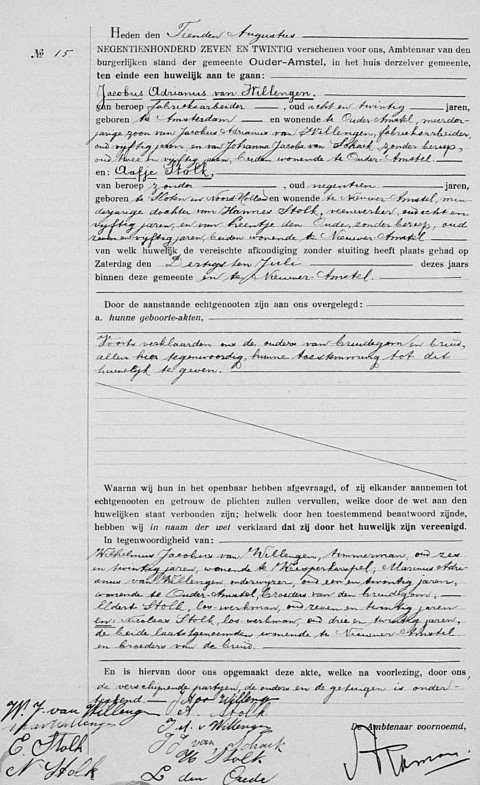 Heden den Tienden Augustus
Nº 15
NEGENTIENHONDERD ZEVEN EN TWINTIG verschenen voor ons, Ambtenaar van den
burgerlijken stand der gemeente Ouder-Amstel, in het huis derzelver gemeente,
ten einde een huwelijk aan te gaan:
Jacobus Adrianus van Willengen,
van beroep fabrieksarbeider, oud acht en twintig jaren,
geboren te Amsterdam en wonende te Ouder-Amstel, meerder-
jarige zoon van Jacobus Adrianus van Willengen, fabrieksarbeider,
oud vijftig jaren, en van Johanna Jacoba van Schaik, zonder beroep,
oud twee en vijftig jaren, beiden wonende te Ouder-Amstel
en: Aafje Stolk,
van beroep zonder, oud negentien jaren,
geboren te Sloten in Noord Holland en wonende te Nieuwer Amstel, min-
derjarige dochter van Hannes Stolk, veenwerker, oud acht en
vijftig jaren, en van Leentje den Ouden, zonder beroep, oud
zeven en vijftig jaren, beiden wonende te Nieuwer Amstel
van welk huwelijk de vereischte afkondiging zonder stuiting heeft plaats gehad op
Zaterdag den Dertigsten Juli dezes jaars
binnen deze gemeente en te Nieuwer-Amstel.
Door de aanstaande echtgenooten zijn aan ons overgelegd:
a. hunne geboorte-akten,
Voorts verklaarden ons de ouders van bruidegom en bruid,
allen hier tegenwoordig, hunne toestemming tot dit
huwelijk te geven.
Waarna wij hun in het openbaar hebben afgevraagd, of zij elkander aannemen tot
echtgenooten en getrouw de plichten zullen vervullen, welke door de wet aan den
huwelijken staat verbonden zijn; hetwelk door hen toestemmend beantwoord zijnde,
hebben wij in naam der wet verklaard dat zij door het huwelijk zijn vereenigd.
In tegenwoordigheid van:
Wilhelmus Jacobus van Willengen, timmerman, oud zes
en twintig jaren, wonende te Weesperkarspel; Marinus Adri-
anus van Willengen, onderwijzer, oud een en twintig jaren,
wonende te Ouder-Amstel, broeders van den bruidegom,
Eldert Stolk, los-werkman, oud zeven en twintig jaren
en Nicolaas Stolk, los werkman, oud drie en twintig jaren,
de beide laatstgenoemden wonende te Nieuwer Amstel
en broeders van de bruid.
En is hiervan door ons opgemaakt deze akte, welke na voorlezing, door ons,
de verschijnende partijen, de ouders en de getuigen is onder-
teekend.
W. J. van Willengen
A. Stolk
J. A. v Willengen
E. Stolk
J J van Schaik
H Stolk
N Stolk
L den Oude
De Ambtenaar voornoemd,